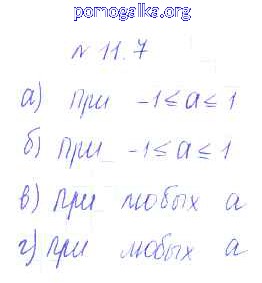 pomogalka.org
№ 11.7
а) при -1 ≤ a ≤ 1
б) при -1 ≤ a ≤ 1
в) при любых a
г) при любых a